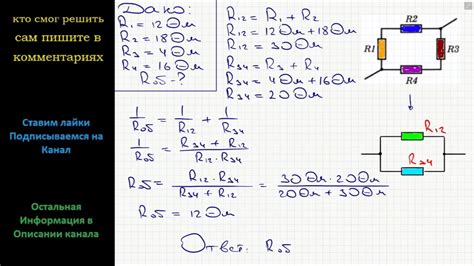 кто смог решить
сам пишите в
комментариях
Ставим лайки
Подписываемся на
Канал
Остальная
Информация в
Описании канала
Дано:
R₁ = 12 Ом
R₂ = 18 Ом
R₃ = 4 Ом
R₄ = 16 Ом
Rоб - ?
R₁₂ = R₁ + R₂
R₁₂ = 12 Ом + 18 Ом
R₁₂ = 30 Ом
R₃₄ = R₃ + R₄
R₃₄ = 4 Ом + 16 Ом
R₃₄ = 20 Ом
1/Rоб = 1/R₁₂ + 1/R₃₄
1/Rоб = (R₃₄ + R₁₂)/(R₁₂ · R₃₄)
Rоб = (R₁₂ · R₃₄)/(R₃₄ + R₁₂) = (30 Ом · 20 Ом)/(20 Ом + 30 Ом)
Rоб = 12 Ом
Ответ: Rоб
R2
R1
R3
R4
R₁₂
R₃₄